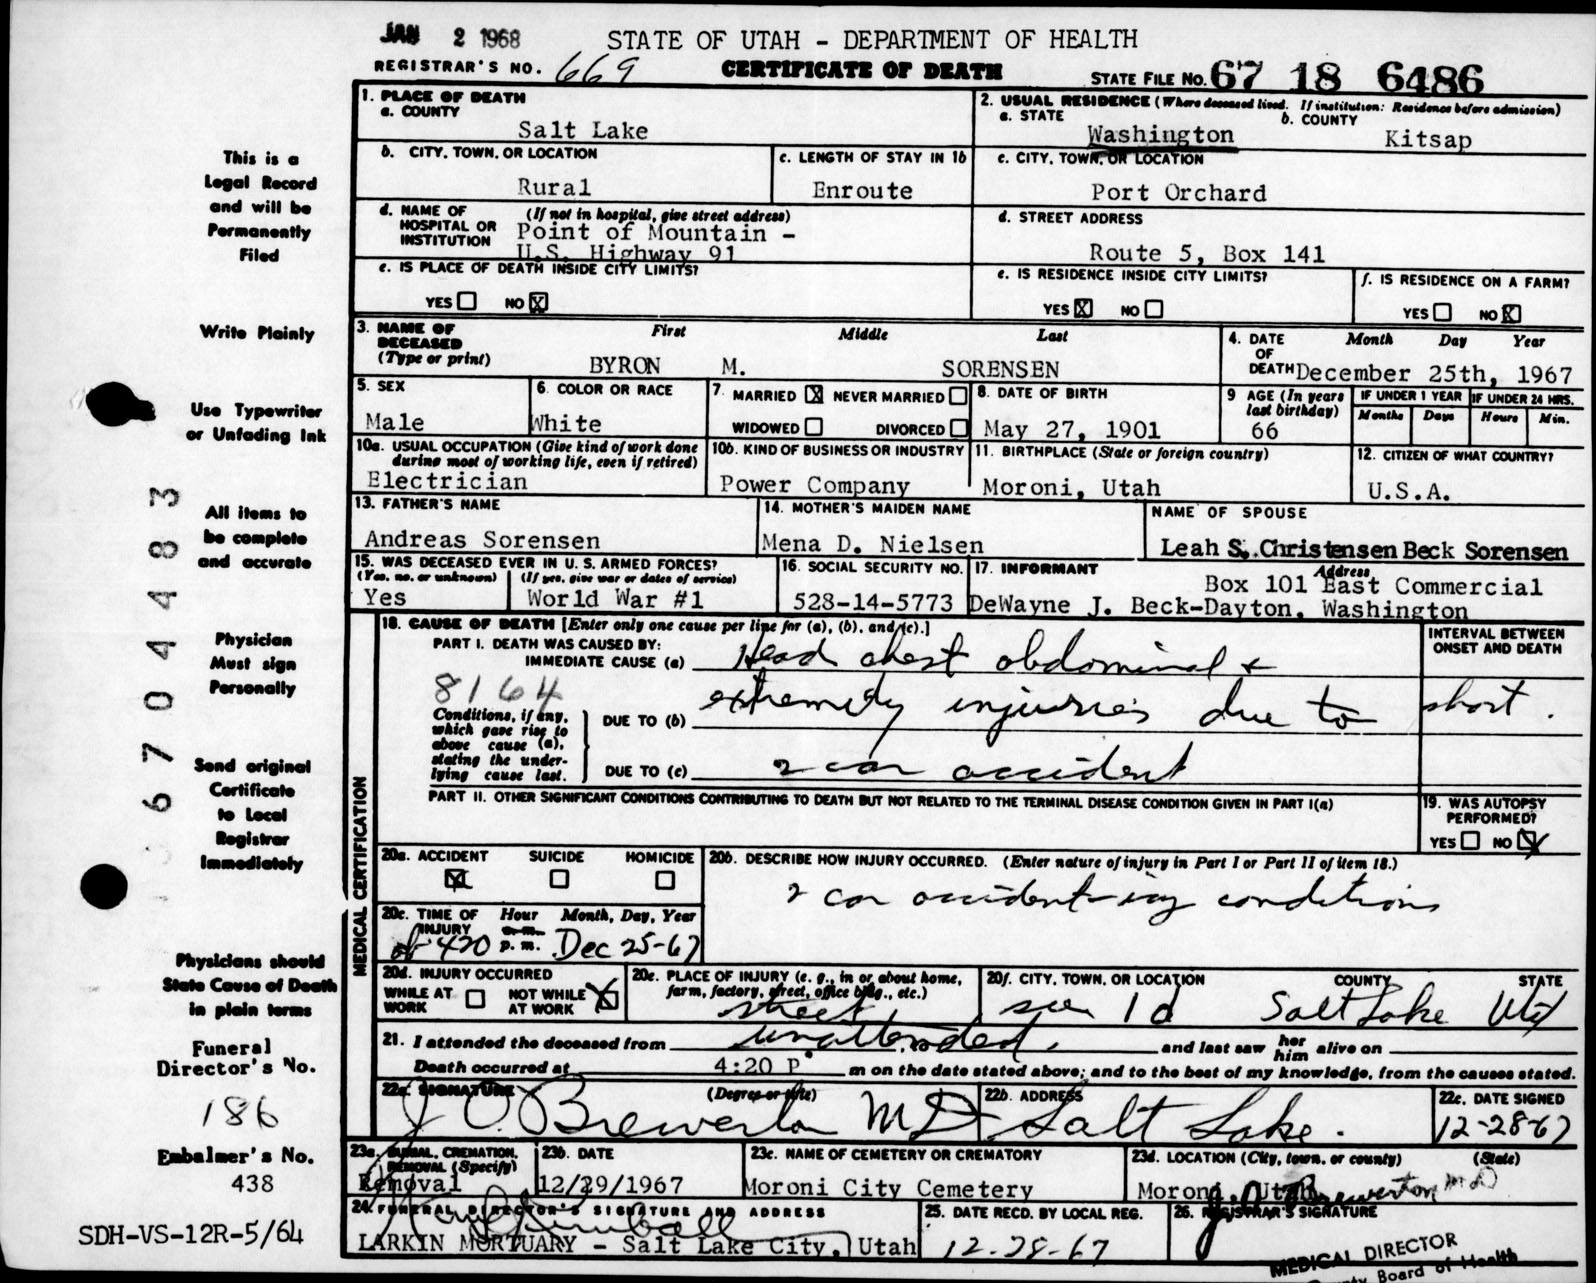 JAN 2 1968
STATE OF UTAH - DEPARTMENT OF HEALTH
REGISTRAR'S NO. 669
CERTIFICATE OF DEATH
STATE FILE NO. 67 18 6486
1. PLACE OF DEATH
a. COUNTY
Salt Lake
2. USUAL RESIDENCE (Where deceased lived. If institution: Residence before admission)
a. STATE
Washington
b. COUNTY
Kitsap
b. CITY, TOWN, OR LOCATION
Rural
c. LENGTH OF STAY IN 1b
Enroute
c. CITY, TOWN, OR LOCATION
Port Orchard
d. NAME OF HOSPITAL OR INSTITUTION
(If not in hospital, give street address)
Point of Mountain -
U.S. Highway 91
d. STREET ADDRESS
Route 5, Box 141
e. IS PLACE OF DEATH INSIDE CITY LIMITS?
YES NO X
e. IS RESIDENCE INSIDE CITY LIMITS?
YES X NO
f. IS RESIDENCE ON A FARM?
YES NO X
3. NAME OF DECEASED (Type or print)
First Middle Last
BYRON M. SORENSEN
4. DATE OF DEATH
Month Day Year
December 25th, 1967
5. SEX
Male
6. COLOR OR RACE
White
7. MARRIED X NEVER MARRIED
WIDOWED DIVORCED
8. DATE OF BIRTH
May 27, 1901
9 AGE (In years last birthday)
66
IF UNDER 1 YEAR
Months Days
IF UNDER 24 HRS.
Hours Min.
10a. USUAL OCCUPATION (Give kind of work done during most of working life, even if retired)
Electrician
10b. KIND OF BUSINESS OR INDUSTRY
Power Company
11. BIRTHPLACE (State or foreign country)
Moroni, Utah
12. CITIZEN OF WHAT COUNTRY?
U.S.A.
13. FATHER'S NAME
Andreas Sorensen
14. MOTHER'S MAIDEN NAME
Mena D. Nielsen
NAME OF SPOUSE
Leah S. Christensen Beck Sorensen
15. WAS DECEASED EVER IN U. S. ARMED FORCES?
(Yes, no, or unknown) (If yes, give war or dates of service)
Yes World War #1
16. SOCIAL SECURITY NO.
528-14-5773
17. INFORMANT Address
Box 101 East Commercial
DeWayne J. Beck-Dayton, Washington
18. CAUSE OF DEATH [Enter only one cause per line for (a), (b), and (c).]
PART I. DEATH WAS CAUSED BY:
IMMEDIATE CAUSE (a) Head chest abdominal &
8164
Conditions, if any, which gave rise to above cause (a), stating the underlying cause last.
DUE TO (b) extremity injuries due to
DUE TO (c) 2 car accident
INTERVAL BETWEEN ONSET AND DEATH
short.
PART II. OTHER SIGNIFICANT CONDITIONS CONTRIBUTING TO DEATH BUT NOT RELATED TO THE TERMINAL DISEASE CONDITION GIVEN IN PART I(a)
19. WAS AUTOPSY PERFORMED?
YES NO X
MEDICAL CERTIFICATION
20a. ACCIDENT SUICIDE HOMICIDE
X
20b. DESCRIBE HOW INJURY OCCURRED. (Enter nature of injury in Part I or Part II of item 18.)
2 car accident - icy conditions
20c. TIME OF INJURY
Hour Month, Day, Year
a.m.
420 p.m. Dec 25-67
20d. INJURY OCCURRED
WHILE AT WORK NOT WHILE AT WORK X
20e. PLACE OF INJURY (e. g., in or about home, farm, factory, street, office bldg., etc.)
street
20f. CITY, TOWN, OR LOCATION COUNTY STATE
see 1d Salt Lake Utah
21. I attended the deceased from unattended to and last saw her him alive on
Death occurred at 4:20 P m on the date stated above; and to the best of my knowledge, from the causes stated.
22a. SIGNATURE (Degree or title)
J O. Brewerton MD
22b. ADDRESS
Salt Lake.
22c. DATE SIGNED
12-28-67
23a. BURIAL, CREMATION, REMOVAL (Specify)
Removal
23b. DATE
12/29/1967
23c. NAME OF CEMETERY OR CREMATORY
Moroni City Cemetery
23d. LOCATION (City, town, or county) (State)
Moroni, Utah
24. FUNERAL DIRECTOR'S SIGNATURE AND ADDRESS
LARKIN MORTUARY - Salt Lake City, Utah
25. DATE RECD. BY LOCAL REG.
12-28-67
26. REGISTRAR'S SIGNATURE
J. O. Brewerton MD
MEDICAL DIRECTOR
Board of Health
This is a
Legal Record
and will be
Permanently
Filed
Write Plainly
Use Typewriter
or Unfading Ink
All items to
be complete
and accurate
Physician
Must sign
Personally
Send original
Certificate
to Local
Registrar
Immediately
Physicians should
State Cause of Death
in plain terms
Funeral
Director's No.
186
Embalmer's No.
438
SDH-VS-12R-5/64
6704483